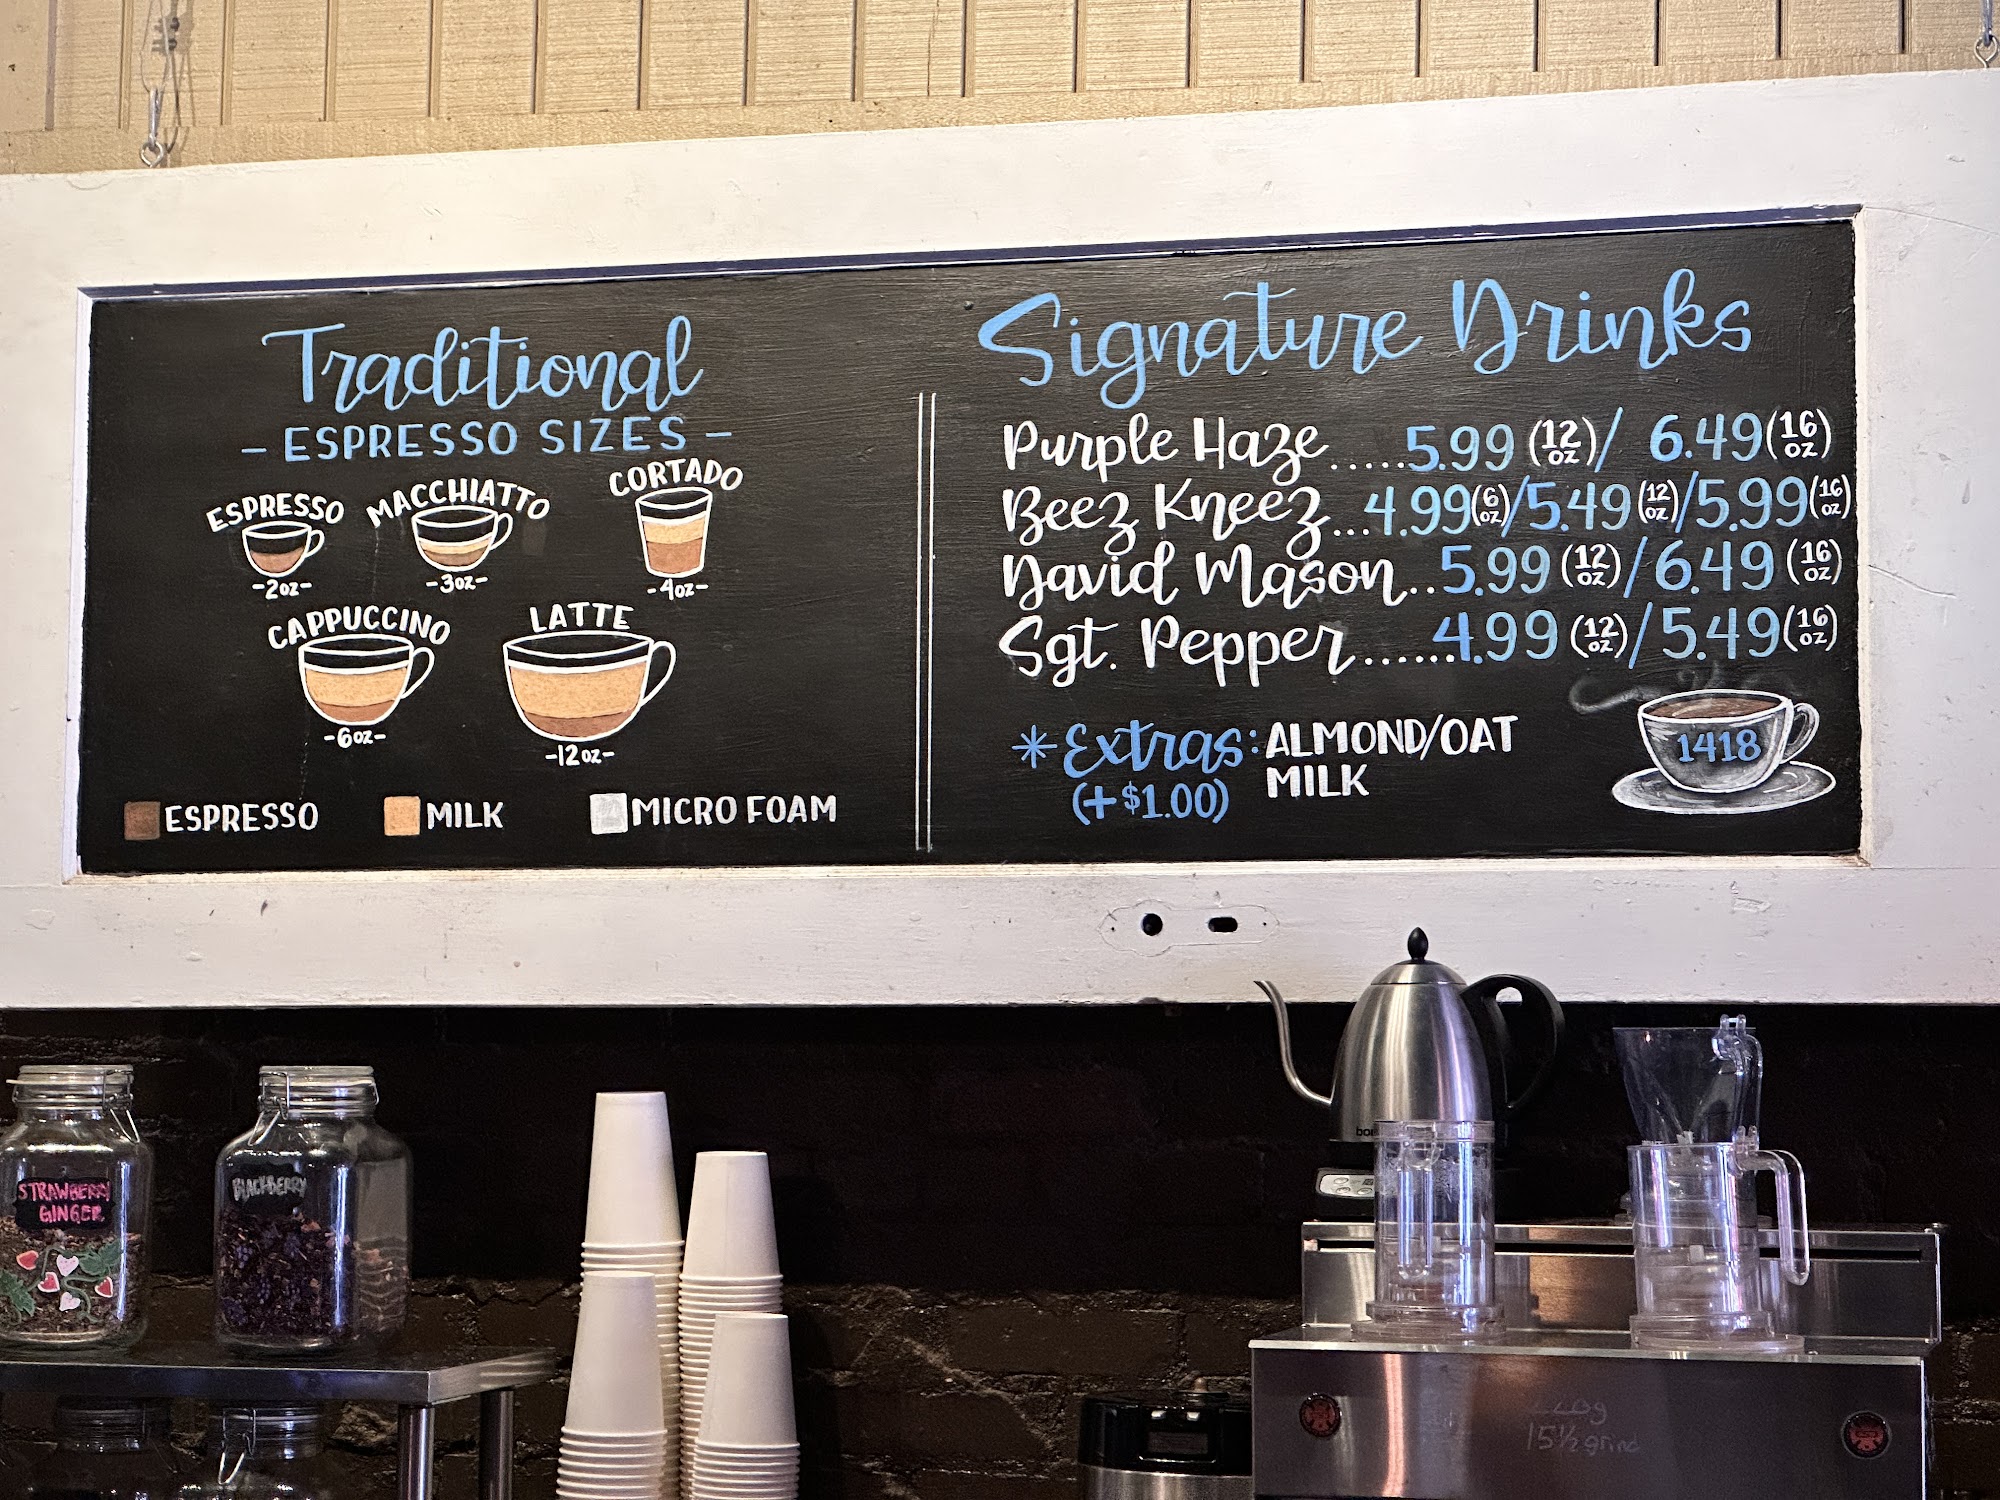 Traditional
- ESPRESSO SIZES -
ESPRESSO
-2oz-
MACCHIATTO
-3oz-
CORTADO
-4oz-
CAPPUCCINO
-6oz-
LATTE
-12oz-
ESPRESSO
MILK
MICRO FOAM
Signature Drinks
Purple Haze.....5.99 (12 oz)/ 6.49 (16 oz)
Beez Kneez...4.99 (6 oz)/5.49 (12 oz)/5.99 (16 oz)
David Mason..5.99 (12 oz)/6.49 (16 oz)
Sgt. Pepper......4.99 (12 oz)/5.49 (16 oz)
*Extras: ALMOND/OAT
MILK
(+$1.00)
1418
STRAWBERRY
GINGER
BLACKBERRY
15½ grind